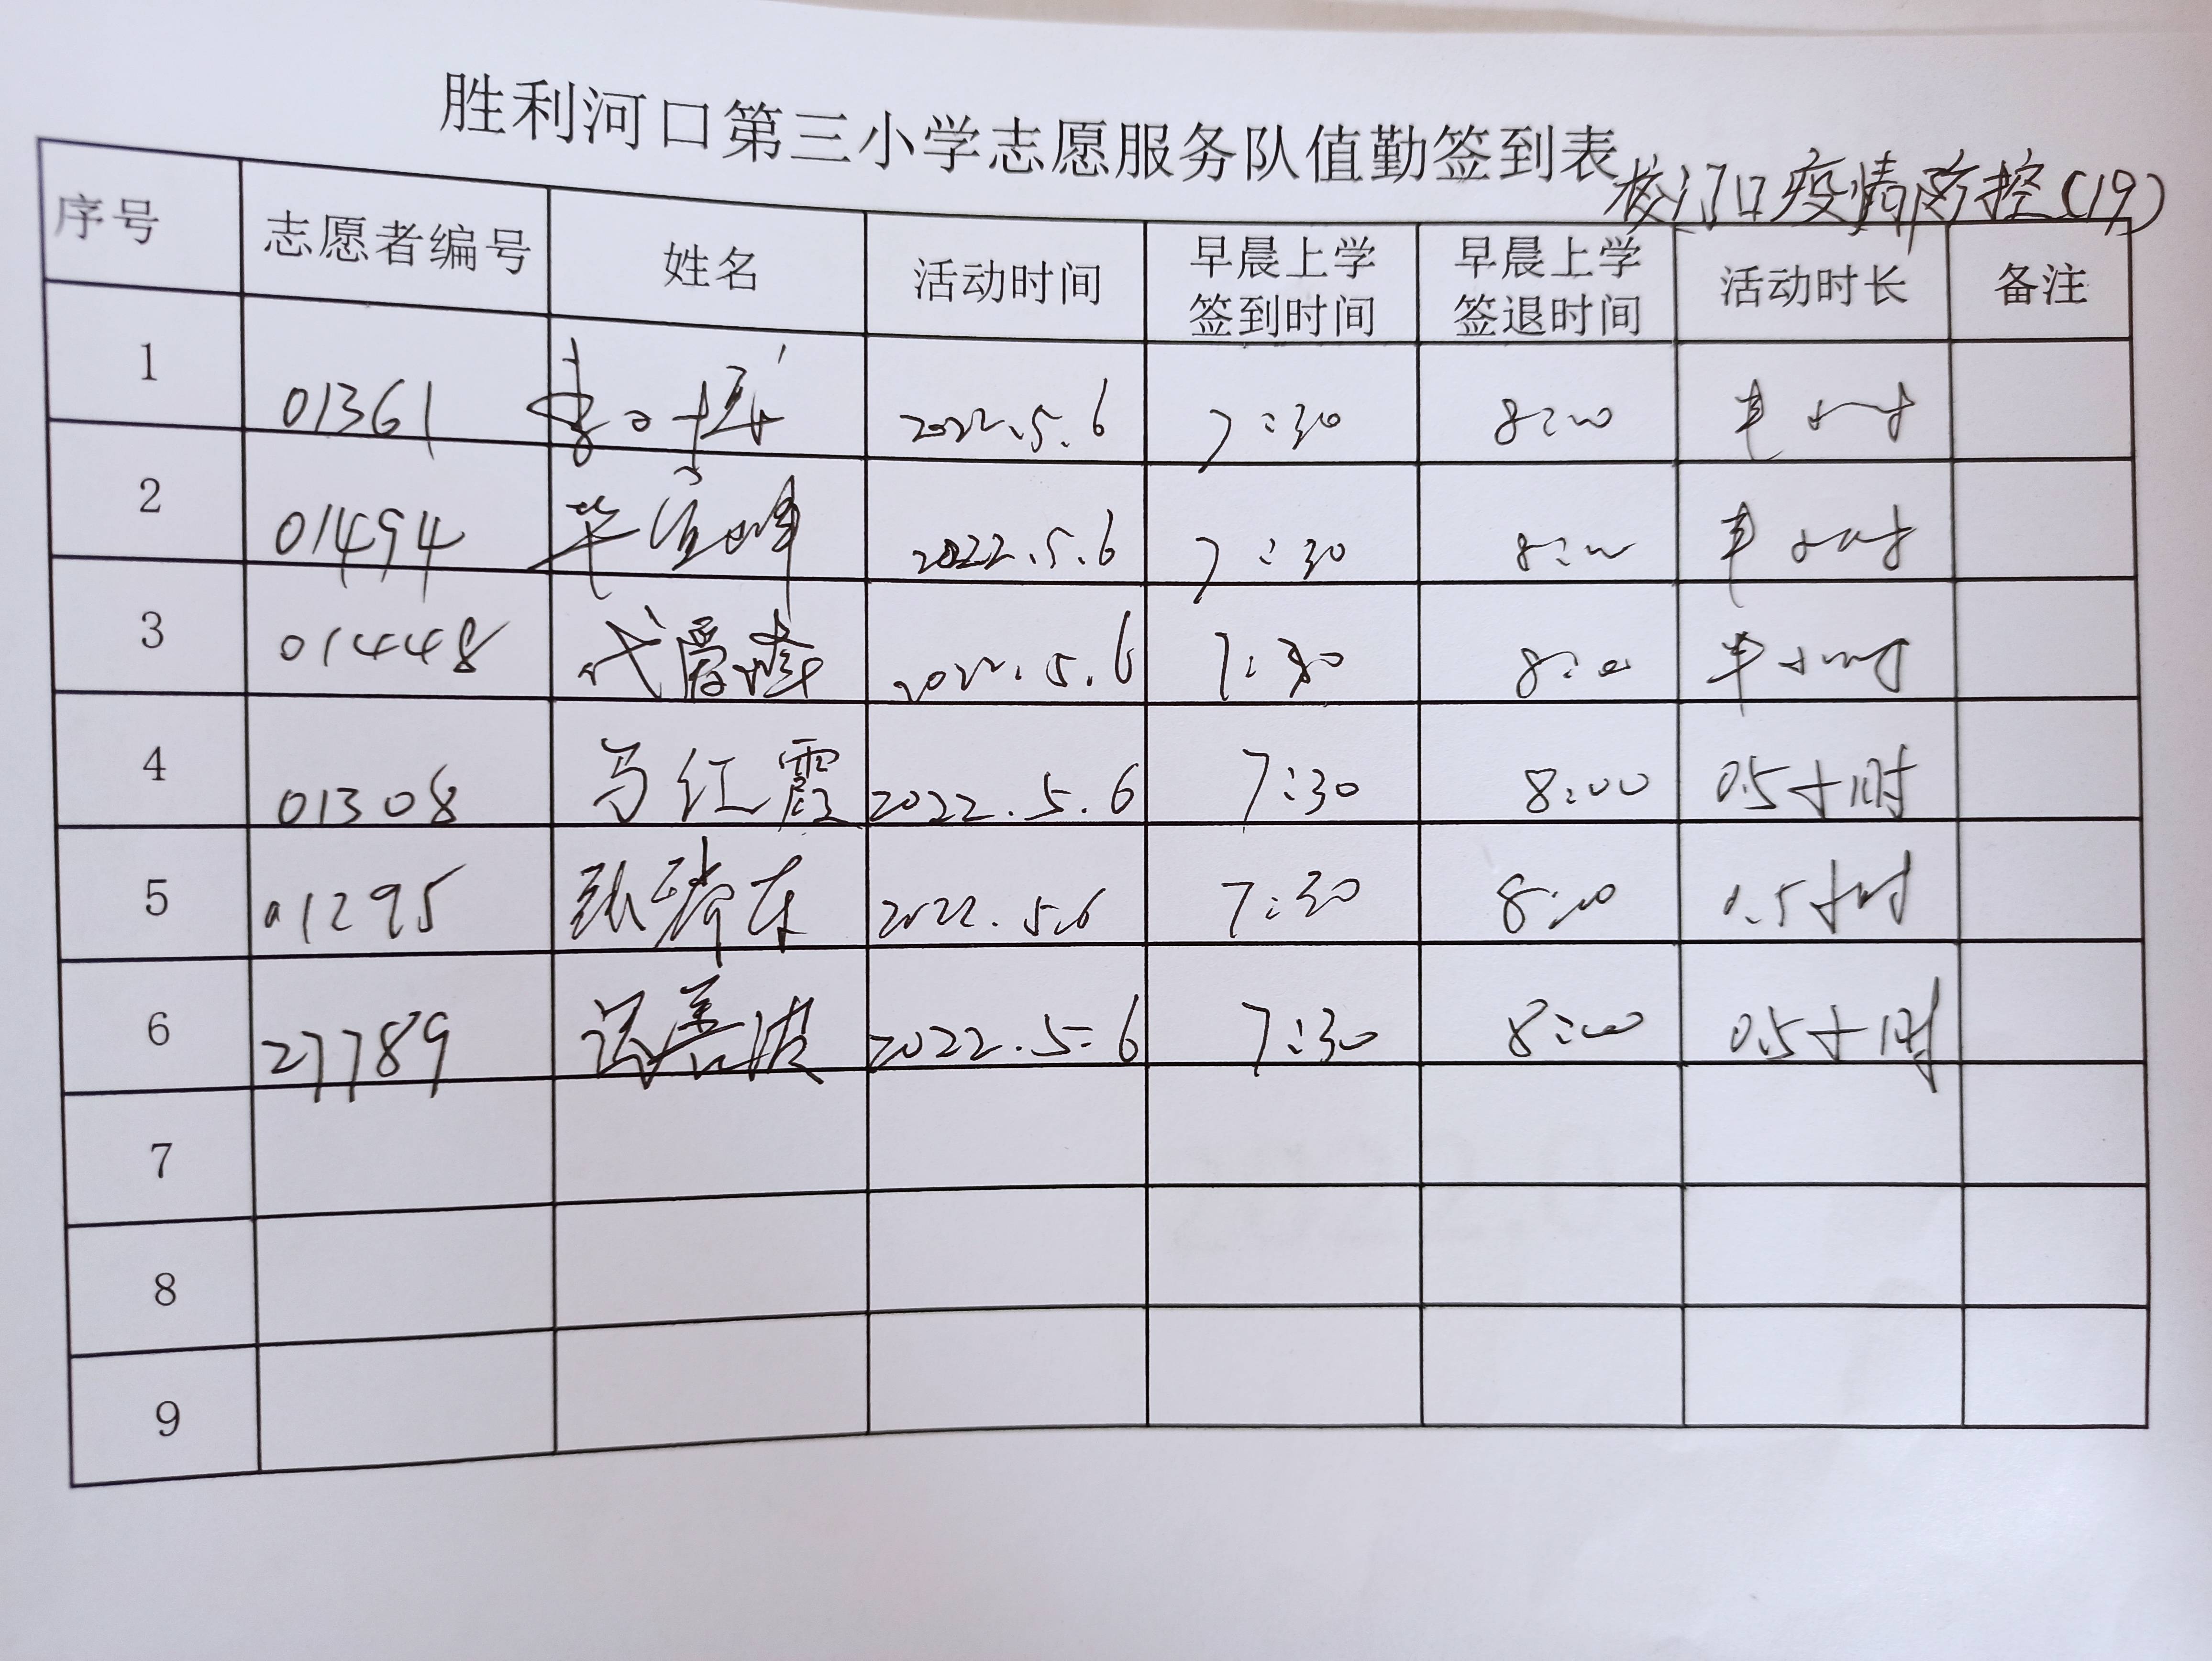 胜利河口第三小学志愿服务队值勤签到表
校门口疫情防控(19)
序号 志愿者编号 姓名 活动时间 早晨上学签到时间 早晨上学签退时间 活动时长 备注
1 01361 2022.5.6 7:30 8:00 半小时
2 01494 2022.5.6 7:30 8:00 半小时
3 01448 代爱峰 2022.5.6 7:30 8:00 半小时
4 01308 马红霞 2022.5.6 7:30 8:00 0.5小时
5 01295 2022.5.6 7:30 8:00 0.5小时
6 27789 2022.5.6 7:30 8:00 0.5小时
7
8
9